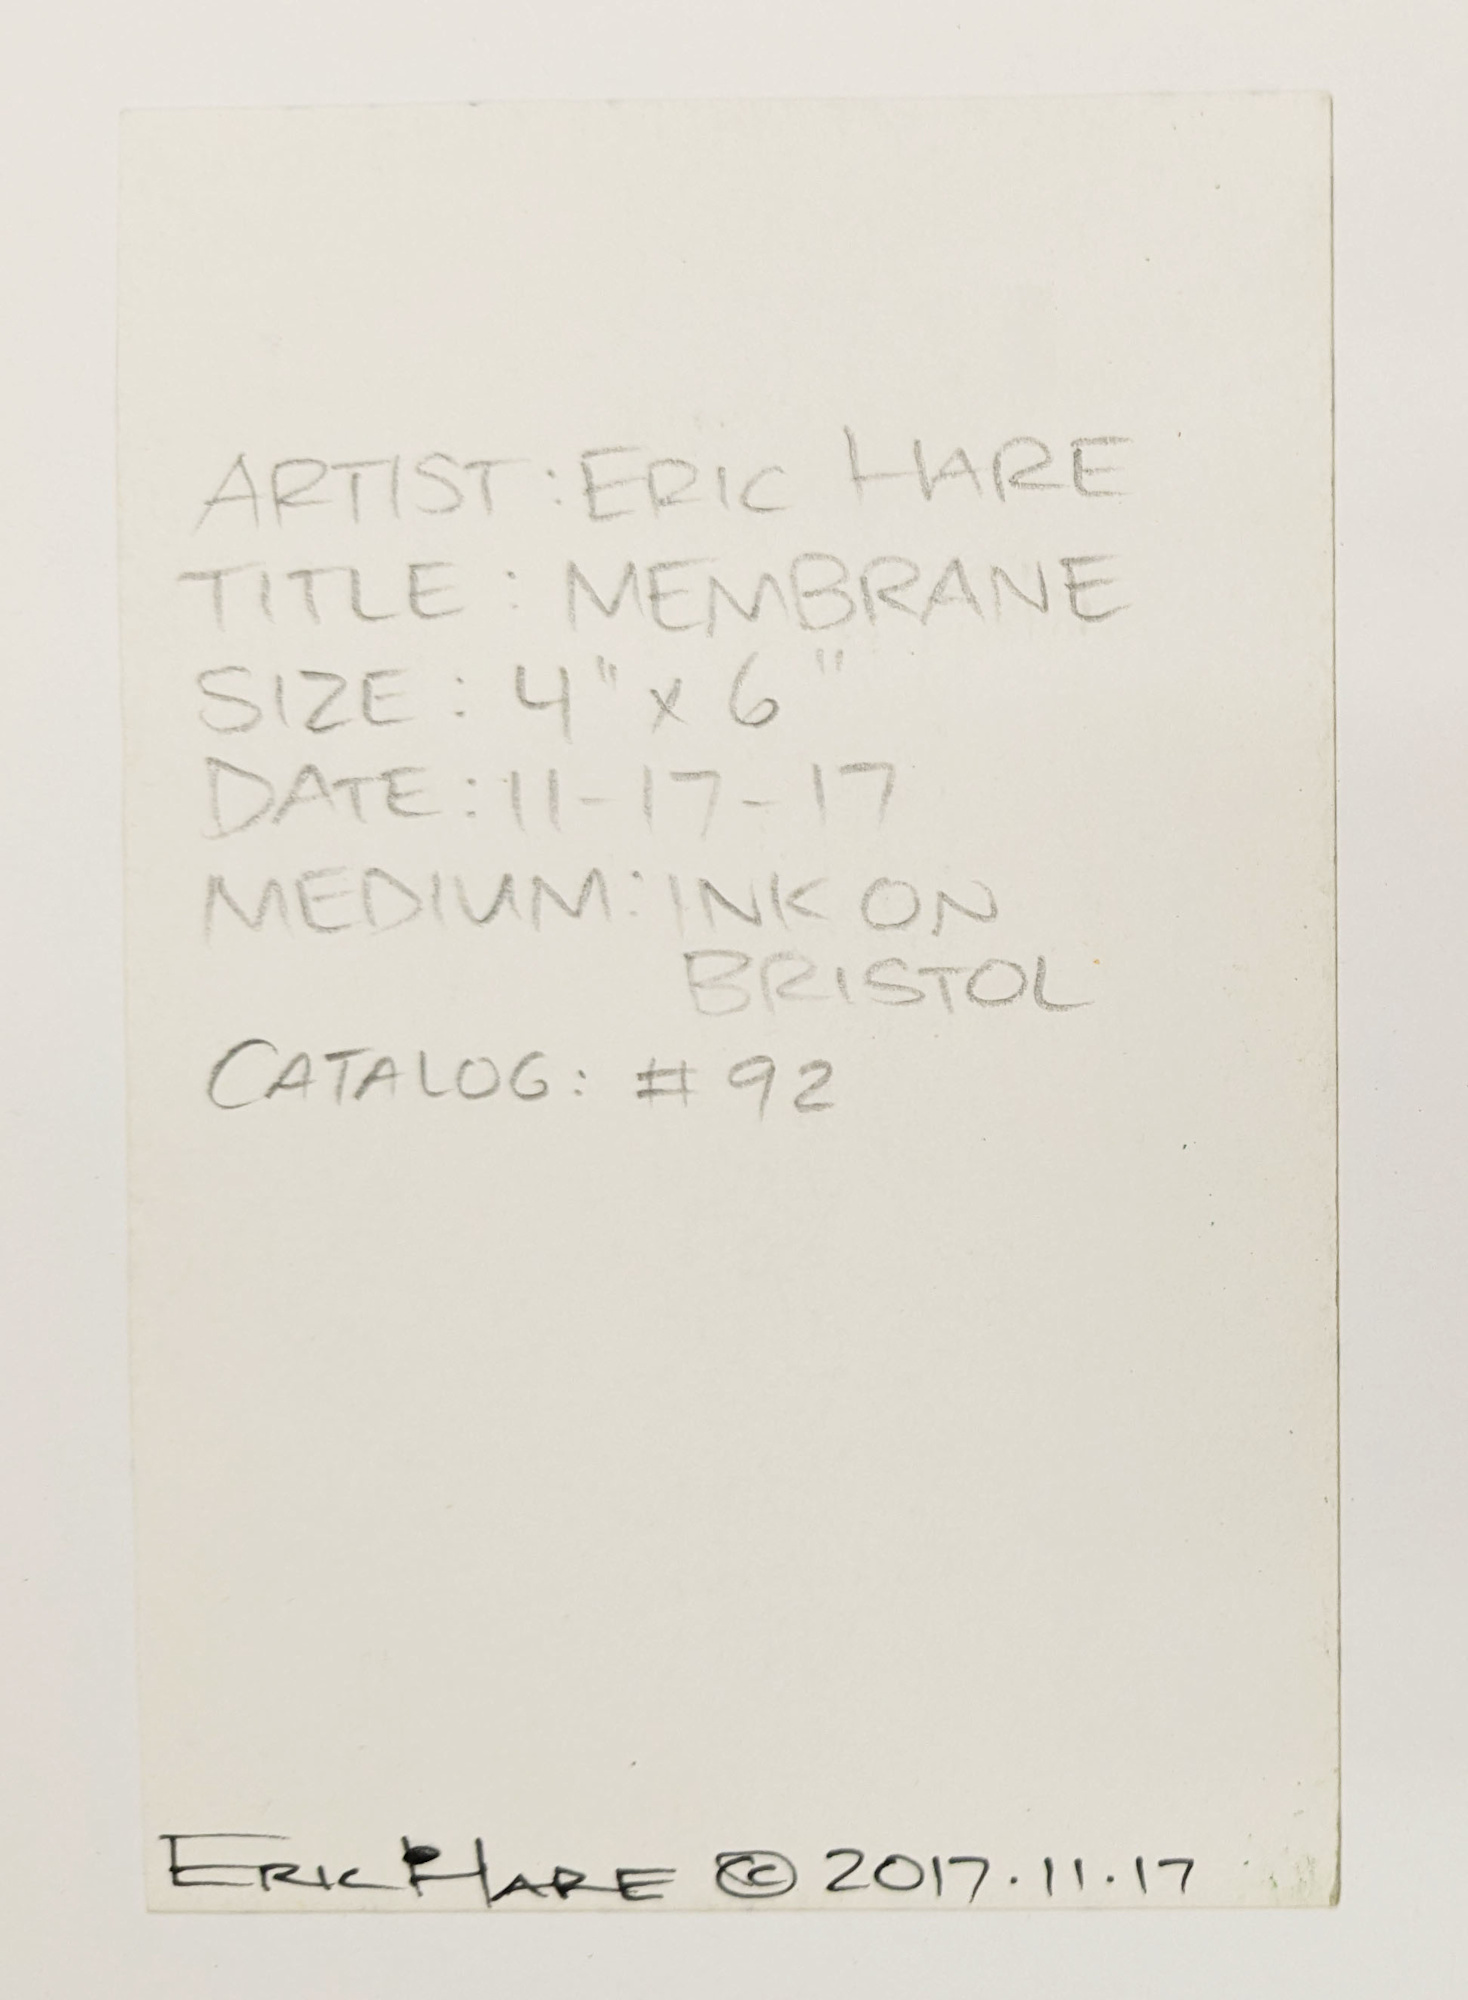 ARTIST: ERIC HARE
TITLE: MEMBRANE
SIZE: 4" x 6"
DATE: 11-17-17
MEDIUM: INK ON
BRISTOL
CATALOG: # 92
ERIC HARE © 2017.11.17